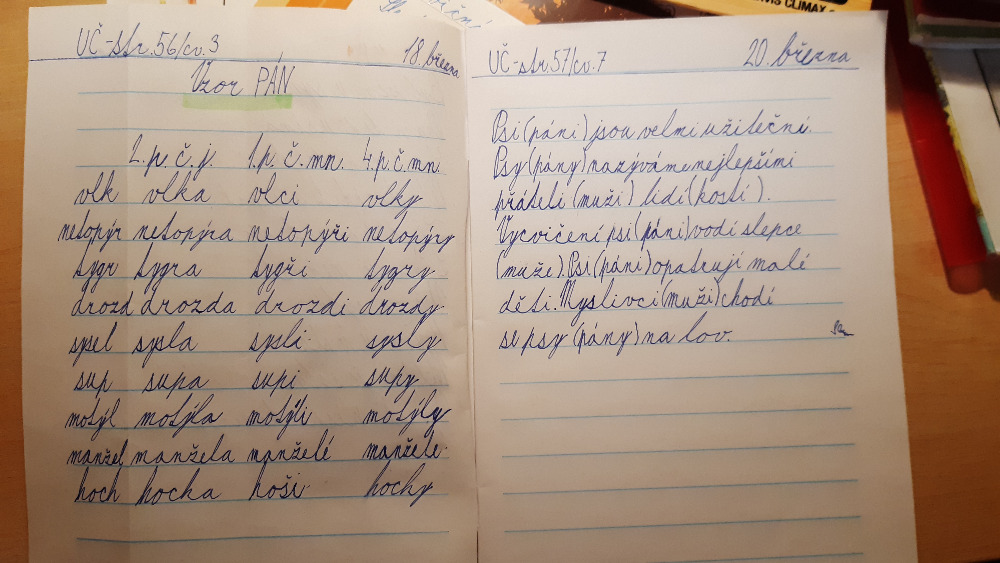 VIS CLIMAX
UČ-str.56/cv.3
18. března
Vzor PÁN
2.p.č.j. 1.p.č.mn. 4.p.č.mn.
vlk vlka vlci vlky
netopýr netopýra netopýři netopýry
tygr tygra tygři tygry
drozd drozda drozdi drozdy
sysel sysla sysli sysly
sup supa supi supy
motýl motýla motýli motýly
manžel manžela manželé manžele
hoch hocha hoši hochy
UČ-str.57/cv.7
20. března
Psi (páni) jsou velmi užiteční.
Psy (pány) nazýváme nejlepšími
přáteli (muži) lidí (kostí).
Vycvičení psi (páni) vodí slepce
(muže). Psi (páni) opatrují malé
děti. Myslivci (muži) chodí
se psy (pány) na lov.